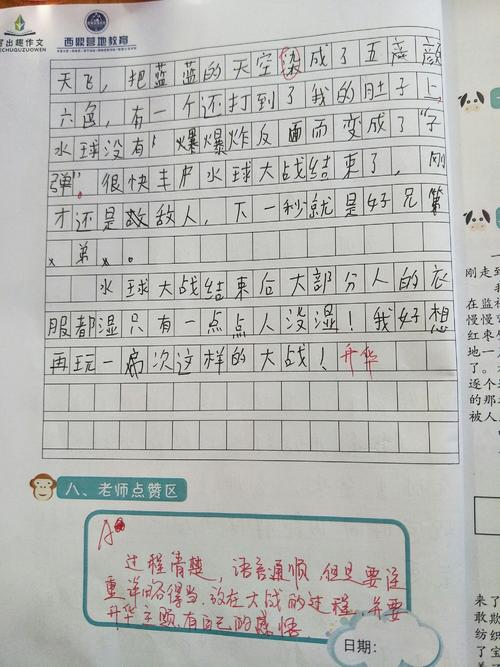 写出趣作文
西顺营地教育
天飞，把蓝蓝的天空染成了五颜
六色，有一个还打到了我的肚子上
水球没有爆爆炸反面而变成了“子
弹”。很快水球大战结束了，刚
才还是敌人，下一秒就是好兄第
弟。
水球大战结束后大部分人的衣
服都湿只有一点点人没湿！我好想
再玩一次这样的大战！升华
八、老师点赞区
A
过程清楚，语言通顺，但是要注
重详略得当，放在大战的过程，并要
升华主题，有自己的感悟
日期：
刚走到
在监
慢慢
红枣
地一
了。
逐个
的那
被人
来了
敢欺
纺织
了宝